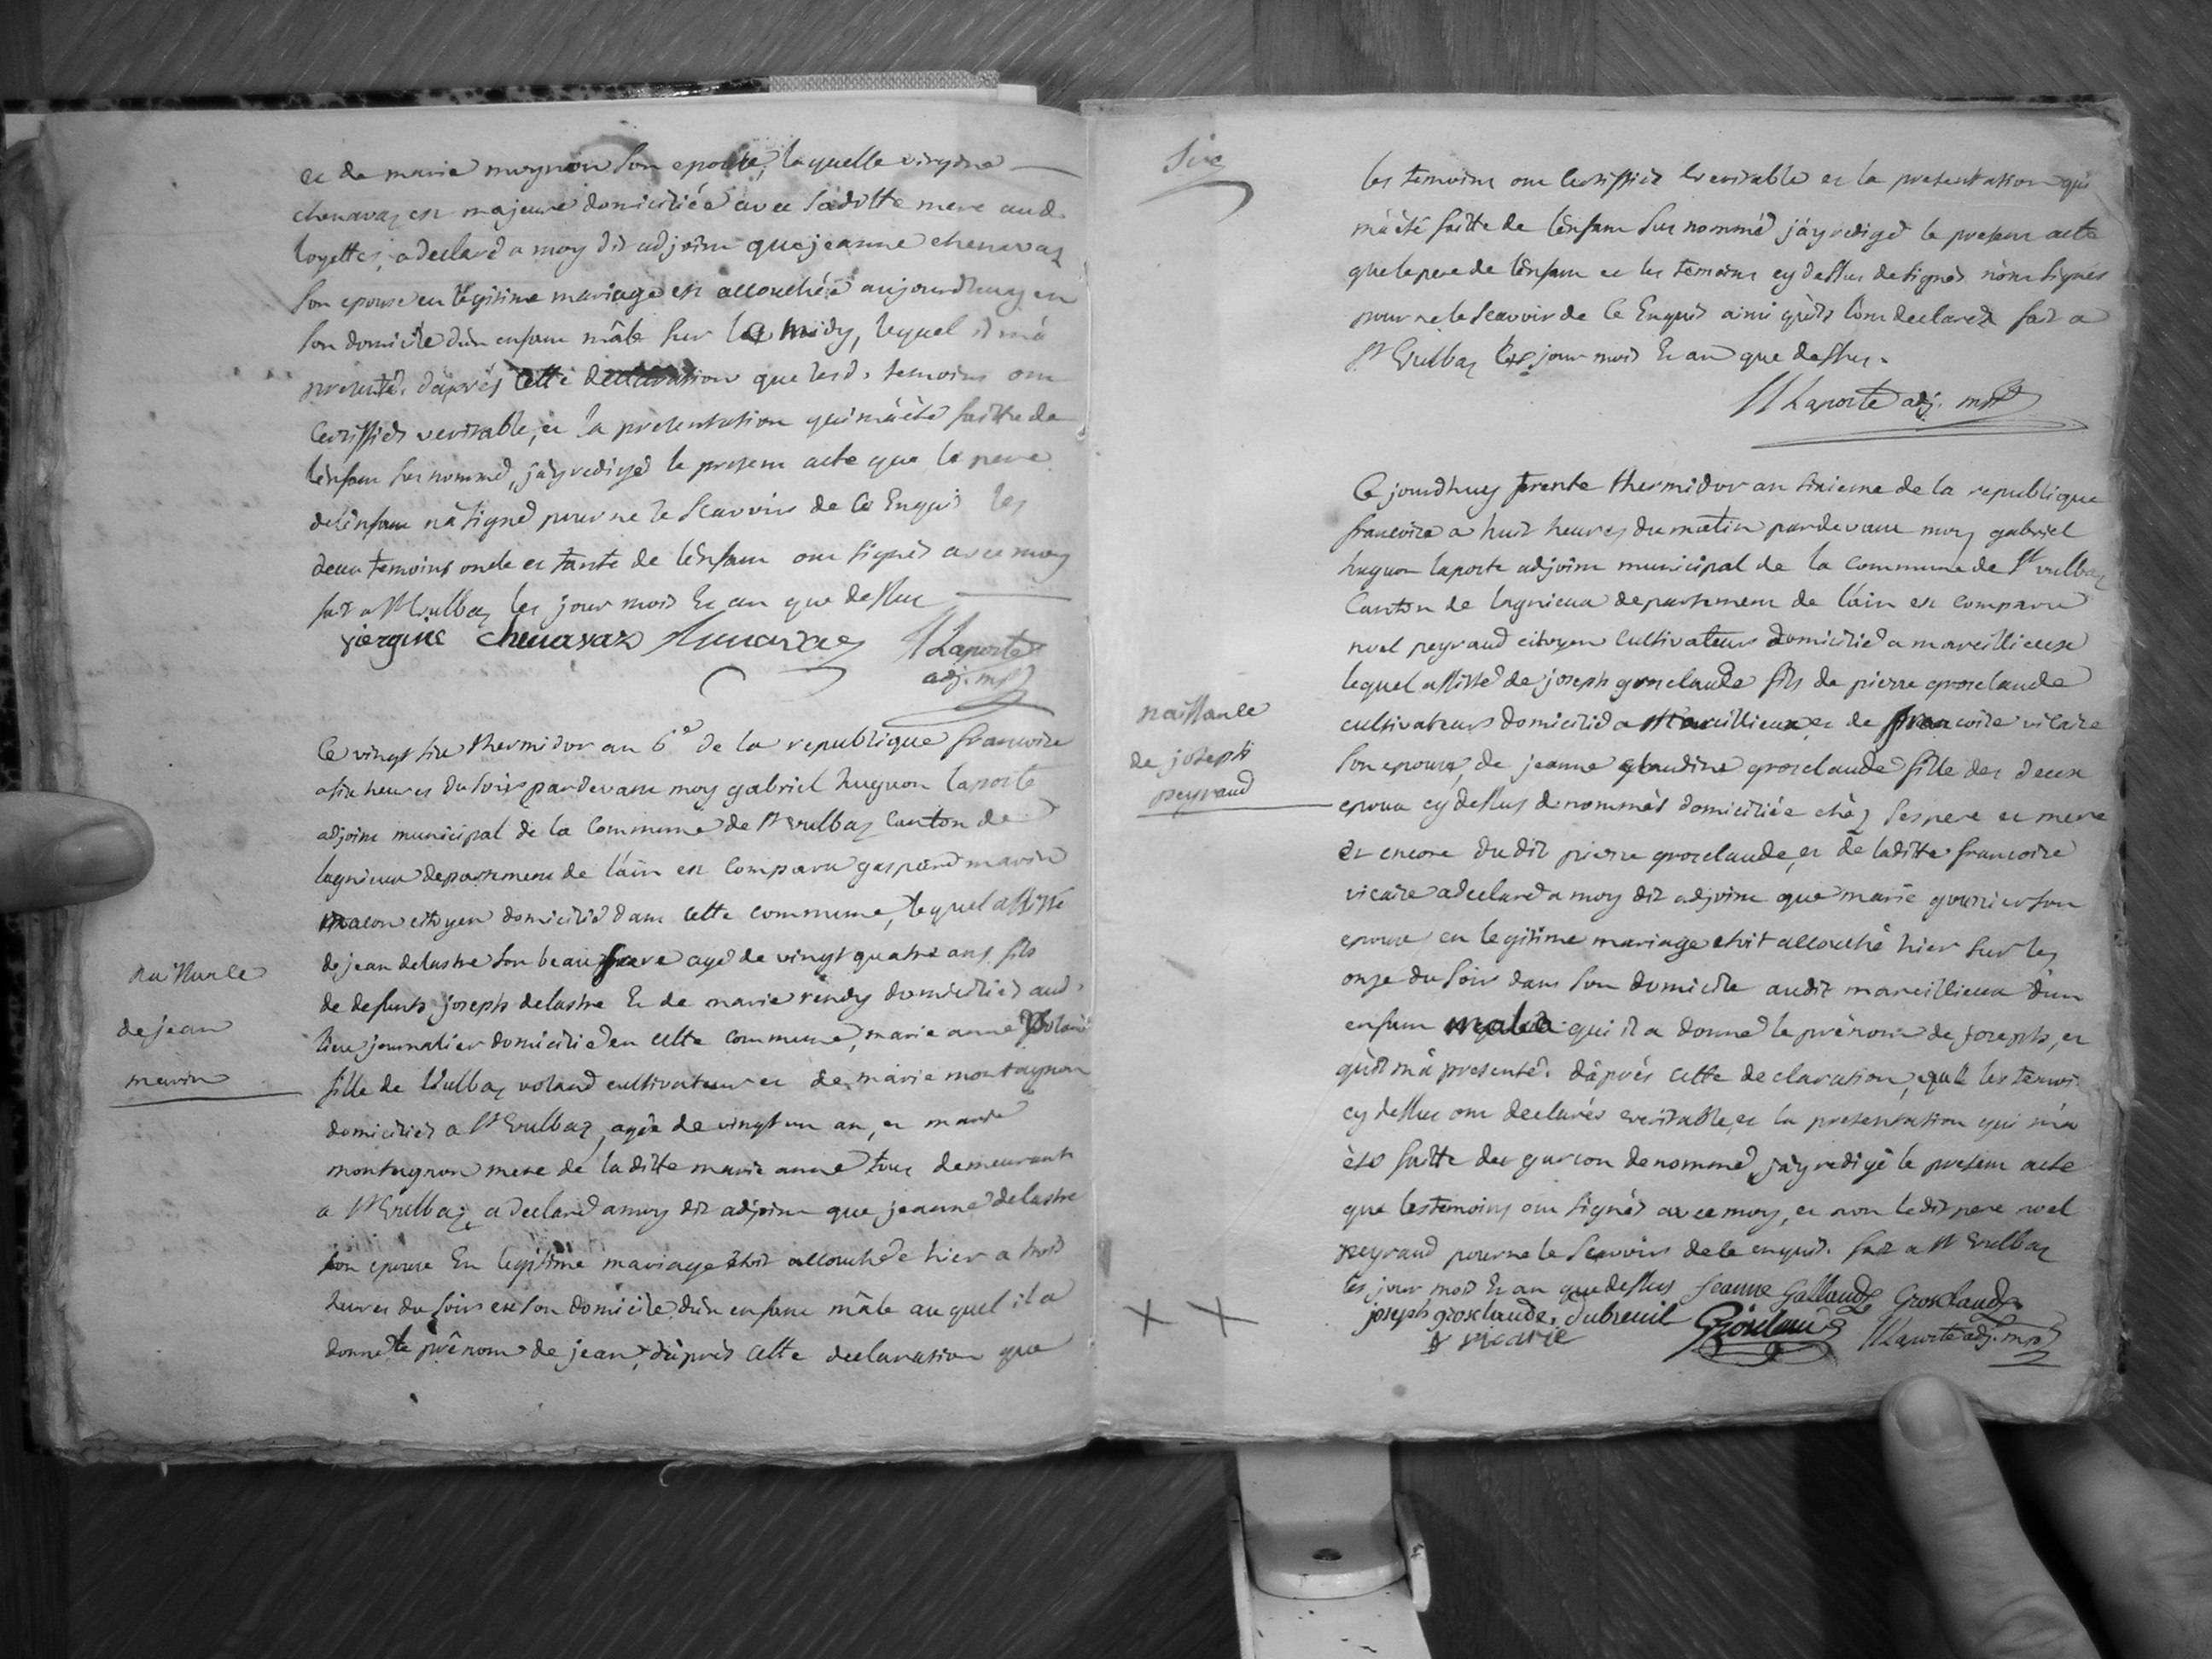 et de marie moynon son epouse, laquelle virgine
chenavaz est majeure domiciliée avec saditte mere aud.
loyettes, a declaré a moy dit adjoint que jeanne chenavaz
son epouse en légitime mariage est accouchée aujourdhuy en
son domicile d'un enfant mâle sur le midy, lequel il m'a
presenté. d'après cette declaration que lesd. temoins ont
certiffiés veritable, et la presentation qui m'a été faitte de
l'enfant sus nommé, j'ay redigé le present acte que le pere
de l'enfant n'a signé pour ne le scavoir de ce enquis les
deux temoins oncle et tante de l'enfant ont signés avec moy
fait a St Vulbaz les jour mois & an que dessus
viergine chenavaz chenavaz hLaporte
adj. mpl
naissance
de jean
marin
Ce vingt six thermidor an 6e de la republique francoise
a six heures du soir pardevant moy gabriel huguon laporte
adjoint municipal de la commune de St Vulbaz canton de
lagnieux departement de l'ain est comparu gaspard marin
macon citoyen domicilié dans cette commune, lequel assisté
de jean delastre son beau frere agé de vingt quatre ans fils
de defunts joseph delastre & de marie rendy domiciliés aud.
lieu journalier domicilié en cette commune, marie anne Voland
fille de Vulbaz voland cultivateur et de marie montagnon
domiciliés a St Vulbaz, agée de vingt un an, et marie
montagnon mere de laditte marie anne tous demeurants
a St Vulbaz, a declaré a moy dit adjoint que jeanne delastre
son epouse En legitime mariage etoit accouchée hier a trois
heures du soir en son domicile d'un enfant mâle auquel il a
donné le prénom de jean, d'après cette declaration que
six
les temoins ont certiffiés veritable et la presentation qui
m'a été faitte de l'enfant sus nommé j'ay redigé le present acte
que le pere de l'enfant et les temoins cy dessus designés n'ont signés
pour ne le scavoir de ce Enquis ainsi qu'ils l'ont declarés fait a
St Vulbaz les jour mois & an que dessus.
hLaporte adj. mpl
naissance
de joseph
peyraud
Ce jourdhuy trente thermidor an sixieme de la republique
francoise a huit heures du matin pardevant moy gabriel
huguon laporte adjoint municipal de la commune de St vulbaz
Canton de lagnieux departement de l'ain est comparu
noel peyraud citoyen cultivateur domicilié a marcillieux
lequel assisté de joseph grosclaude fils de pierre grosclaude
cultivateur domicilié a Marcillieux et de francoise vicaire
son epouse, de jeanne claudine grosclaude fille des deux
epoux cy dessus denommés domiciliée chéz ses pere et mere
et encore dudit pierre grosclaude, et de laditte francoise
vicaire a declaré a moy dit adjoint que marie gourier son
epouse en legitime mariage etoit accouché hier sur les
onze du soir dans son domicile audit marcillieux d'un
enfant male qui il a donné le prénom de joseph, et
qu'il m'a presenté. d'après cette declaration, que les temoi.
cy dessus ont declarés veritable, et la presentation qui m'a
été faitte du garcon denommé, j'ay redigé le present acte
que les temoins ont signés avec moy, et non ledit pere noel
peyraud pour ne le scavoir de ce enquis. fait a St Vulbaz
les jour mois & an que dessus jeanne Gallaude Grosclaude
joseph grosclaude, Dubreuil Grosclaude hLaporte adj. mpl
f vicarie